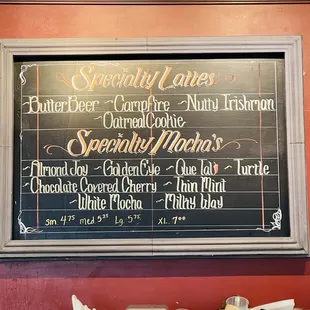 Specialty Lattes
ButterBeer ~Campfire ~Nutty Irishman
~Oatmeal Cookie
Specialty Mocha's
~Almond Joy ~GoldenEye ~Que Tal ~Turtle
~Chocolate Covered Cherry ~Thin Mint
~White Mocha ~Milky Way
Sm. 4.75 med. 5.25 Lg. 5.75 XL. 7.00